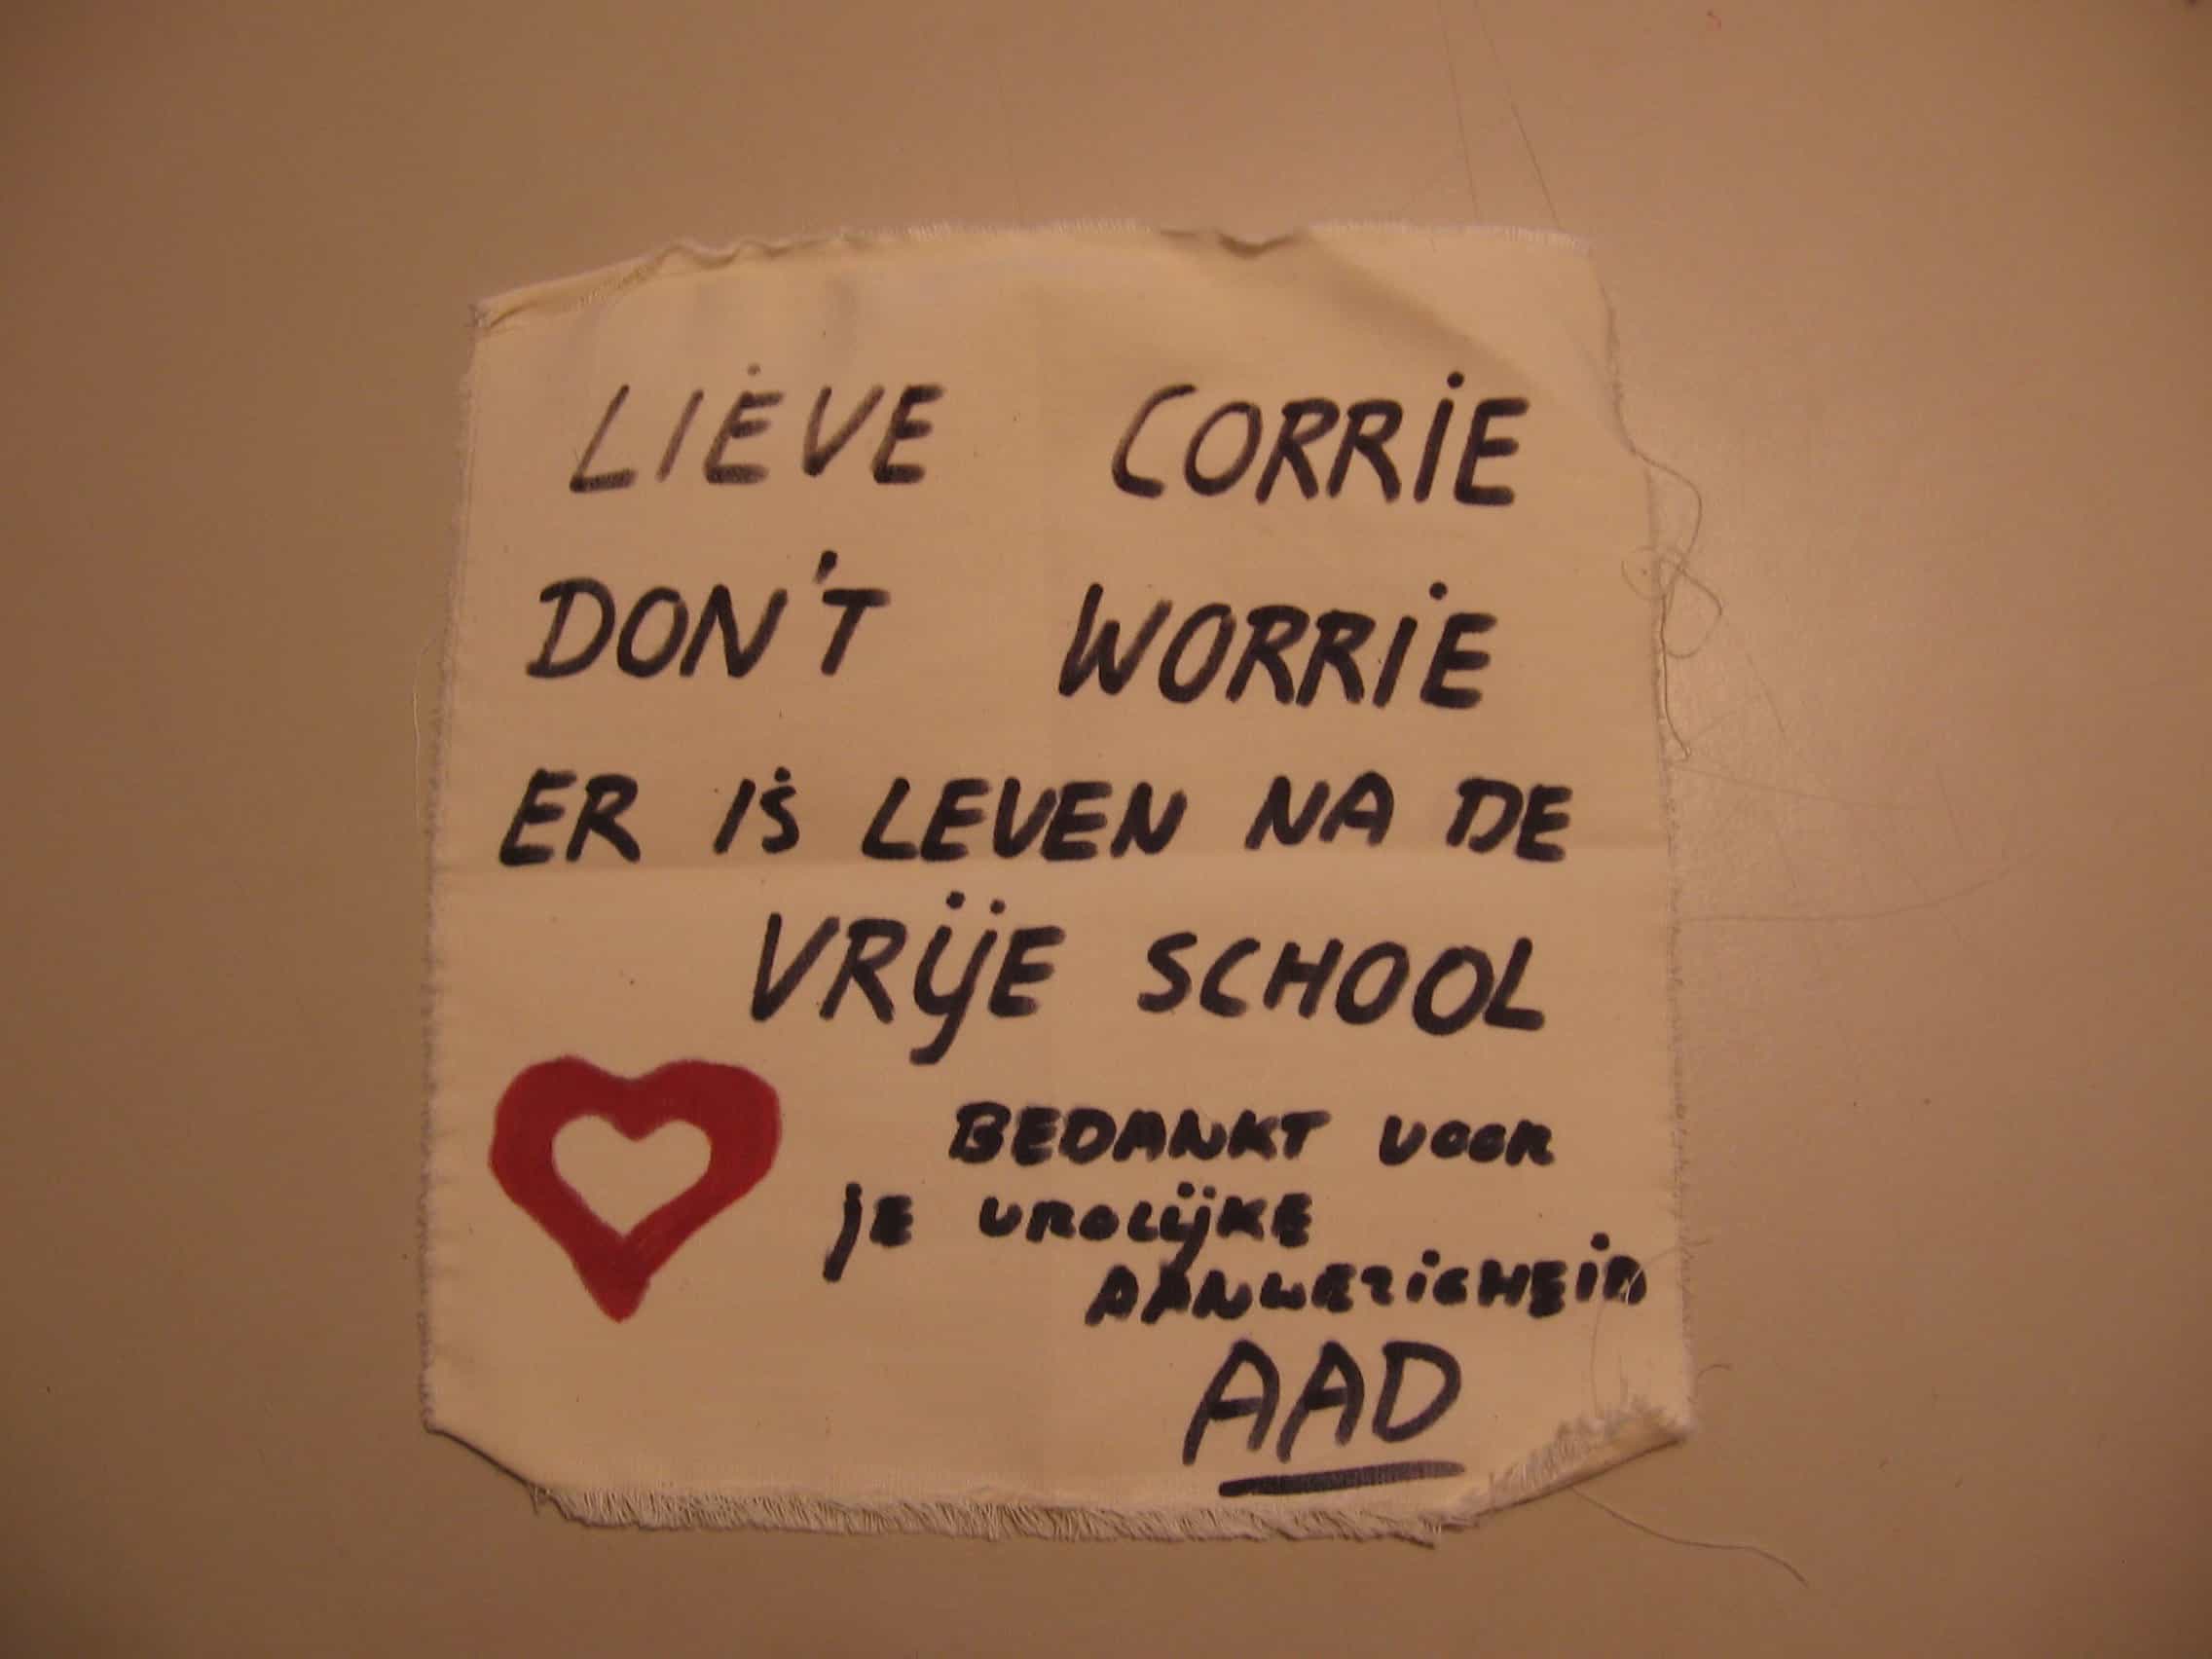 LIEVE CORRIE
DON'T WORRIE
ER IS LEVEN NA DE
VRIJE SCHOOL
BEDANKT VOOR
JE VROLIJKE
AANWEZIGHEID
AAD